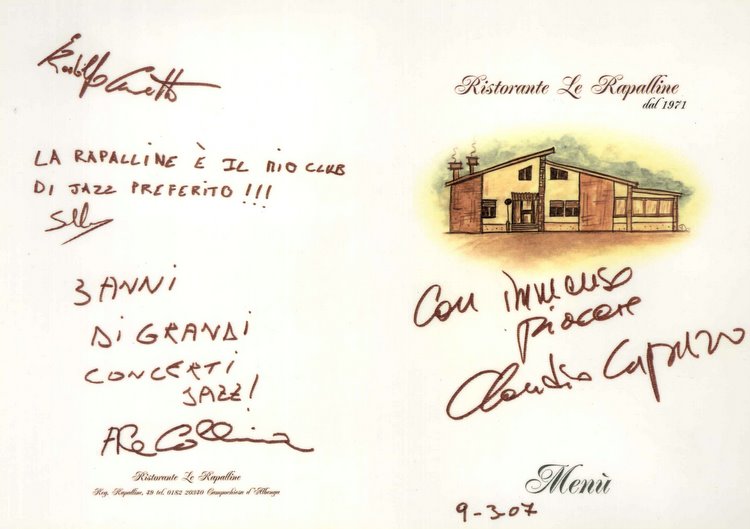 Rodolfo Cervetto
LA RAPALLINE È IL MIO CLUB
DI JAZZ PREFERITO!!!
3 ANNI
DI GRANDI
CONCERTI
JAZZ!
Ale Collina
Ristorante Le Rapalline
Reg. Rapalline, 49 tel. 0182 20340 Campochiesa d'Albenga
Ristorante Le Rapalline
dal 1971
Con immenso
piacere
Claudio Capurro
Menù
9-3-07